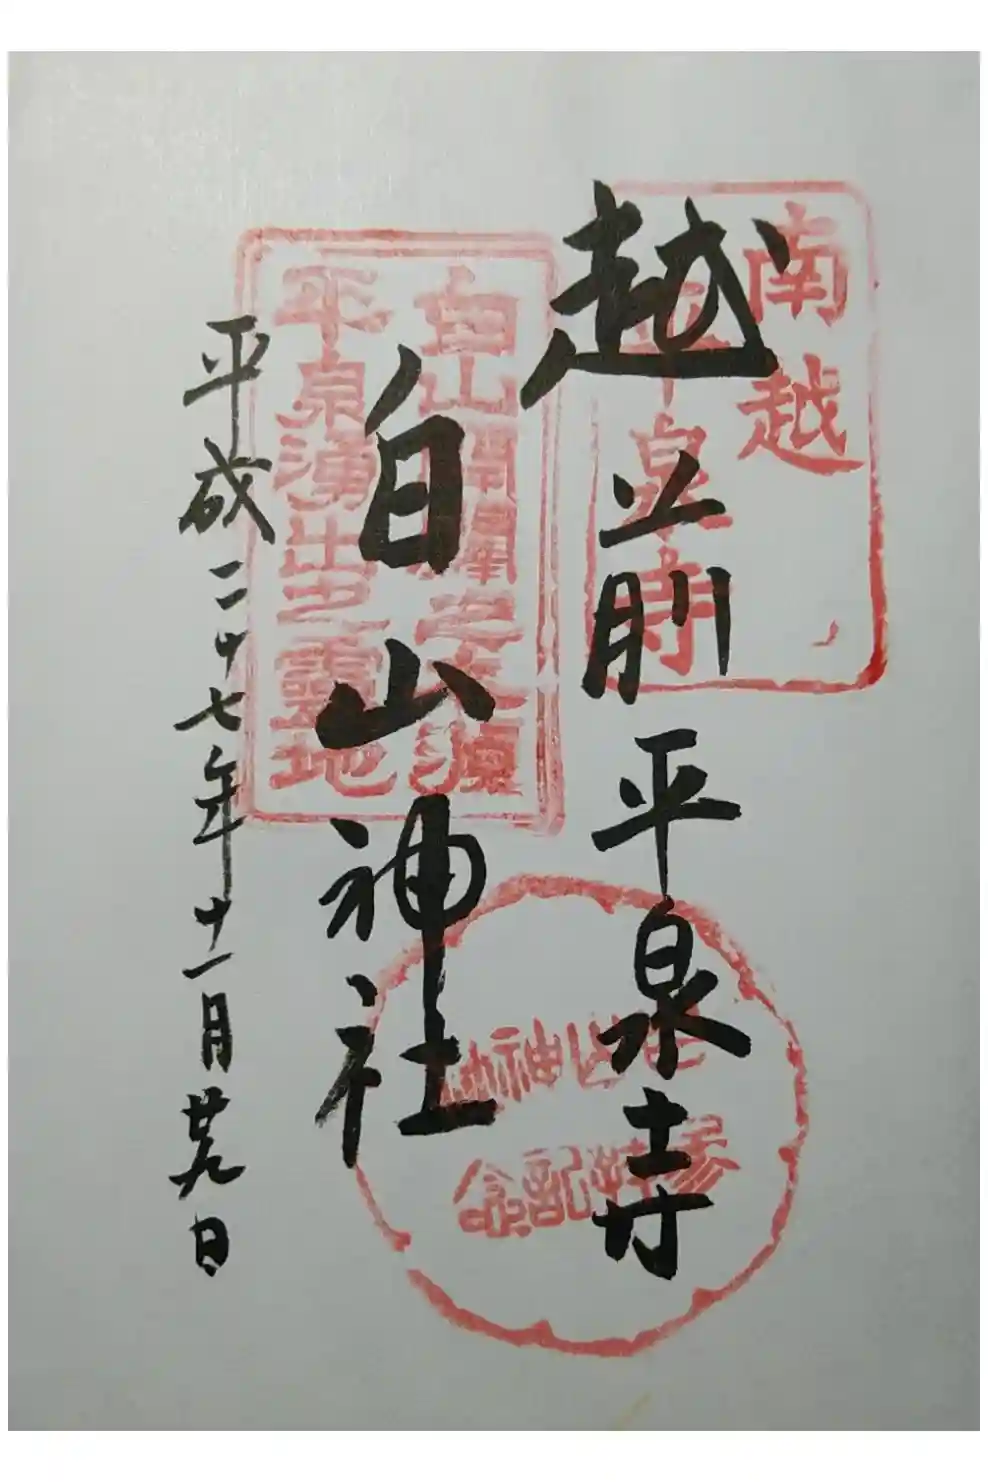 越前平泉寺
白山神社
平成二十七年十一月廿九日
南越
平泉寺
白山開闢之
平泉湧出之靈地
白山神社
参拝記念